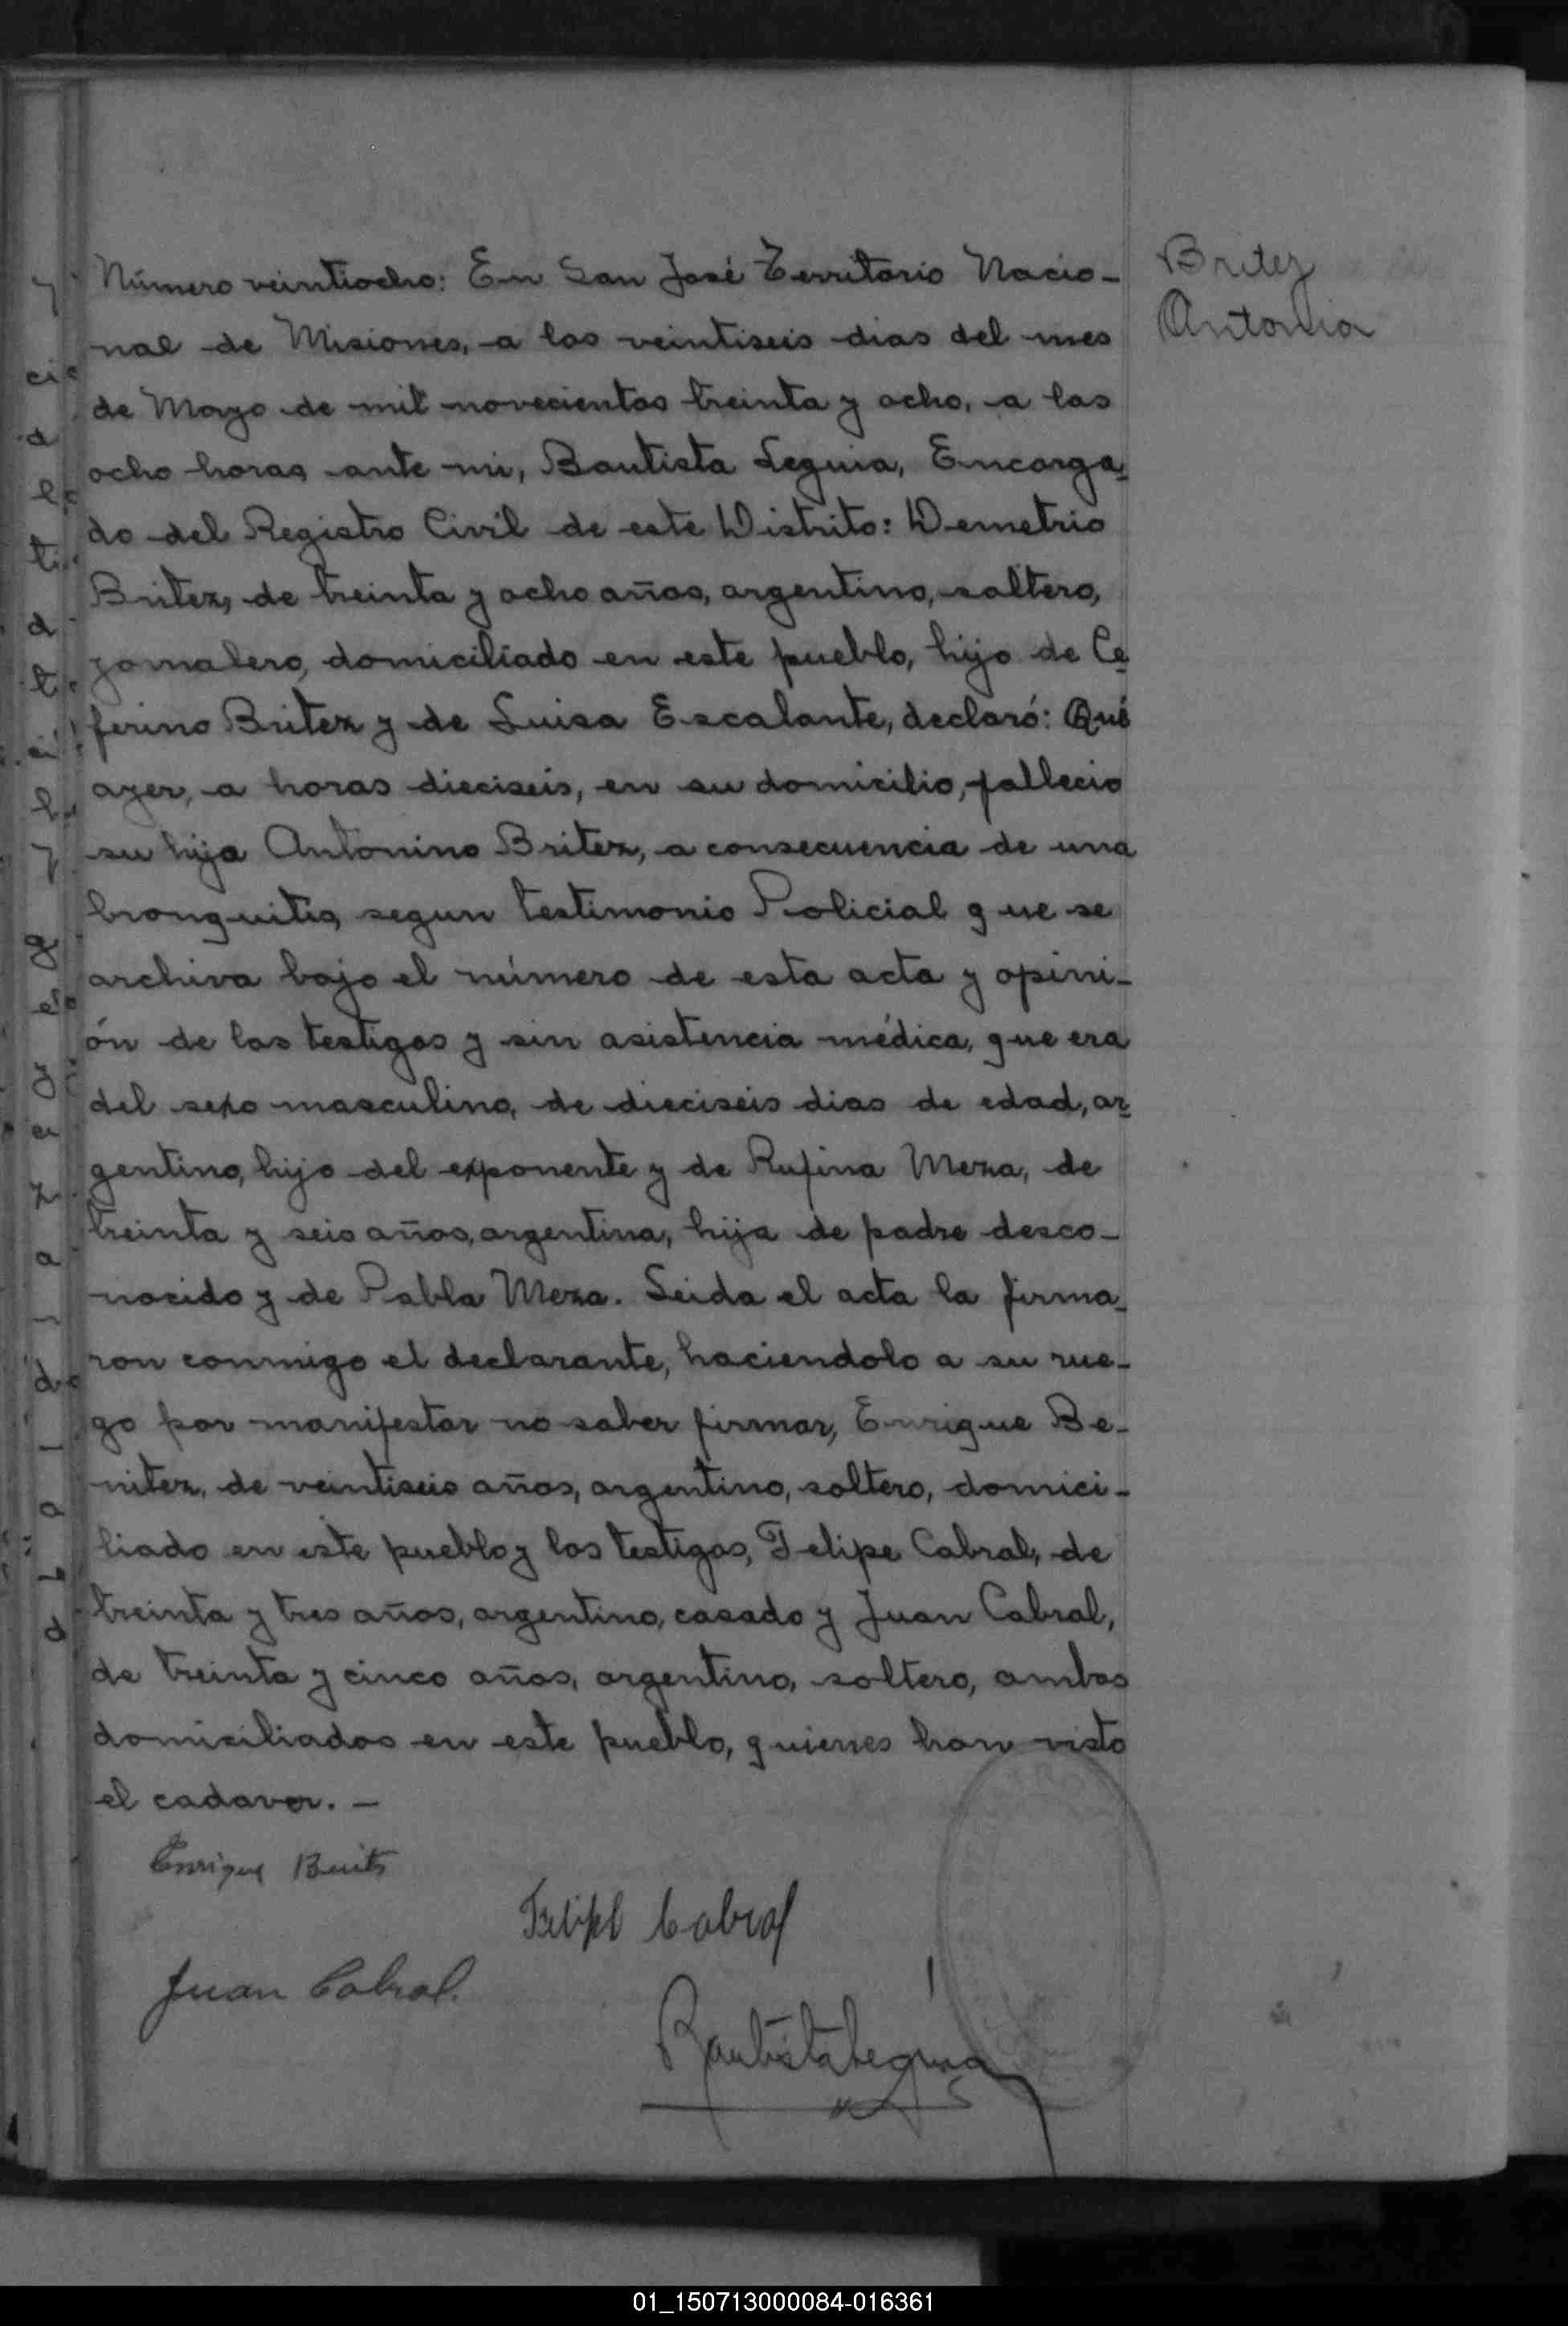 Britez
Antonia
Número veintiocho: En San José Territorio Nacio-
nal de Misiones, a los veintiseis dias del mes
de Mayo de mil novecientos treinta y ocho, a las
ocho horas ante mi, Bautista Leguia, Encarga-
do del Registro Civil de este Distrito: Demetrio
Britez, de treinta y ocho años, argentino, soltero,
jornalero, domiciliado en este pueblo, hijo de Ce-
ferino Britez y de Luisa Escalante, declaró: Qué
ayer, a horas dieciseis, en su domicilio, fallecio
su hija Antonino Britez, a consecuencia de una
bronquitis, segun testimonio Policial que se
archiva bajo el número de esta acta y opini-
ón de los testigos y sin asistencia médica, que era
del sexo masculino, de dieciseis dias de edad, ar-
gentino, hijo del exponente y de Rufina Meza, de
treinta y seis años, argentina, hija de padre desco-
nocido y de Pabla Meza. Leida el acta la firma-
ron conmigo el declarante, haciendolo a su rue-
go por manifestar no saber firmar, Enrique Be-
nitez, de veintiseis años, argentino, soltero, domici-
liado en este pueblo y los testigos, Felipe Cabral, de
treinta y tres años, argentino, casado y Juan Cabral,
de treinta y cinco años, argentino, soltero, ambos
domiciliados en este pueblo, quienes han visto
el cadaver. -
Enrique
Felipe Cabral
Juan Cabral.
Bautista Leguia
01_150713000084-016361